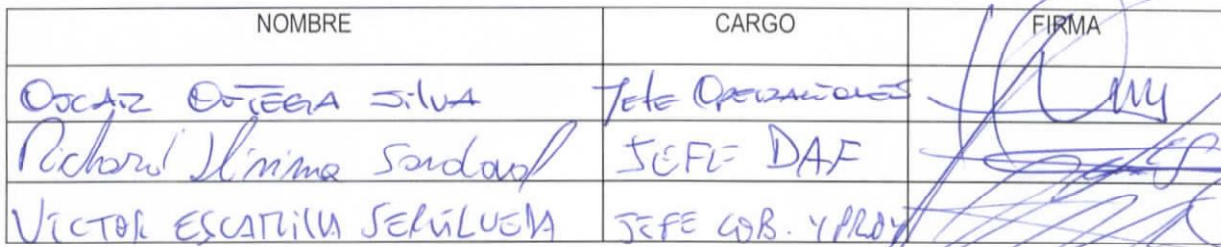 NOMBRE CARGO FIRMA
OSCAR ORTEGA SILVA Jefe OPERACIONES
Richard Sandoval JEFE DAF
VICTOR ESCATILLA SEPÚLVEDA JEFE COB. Y PROY